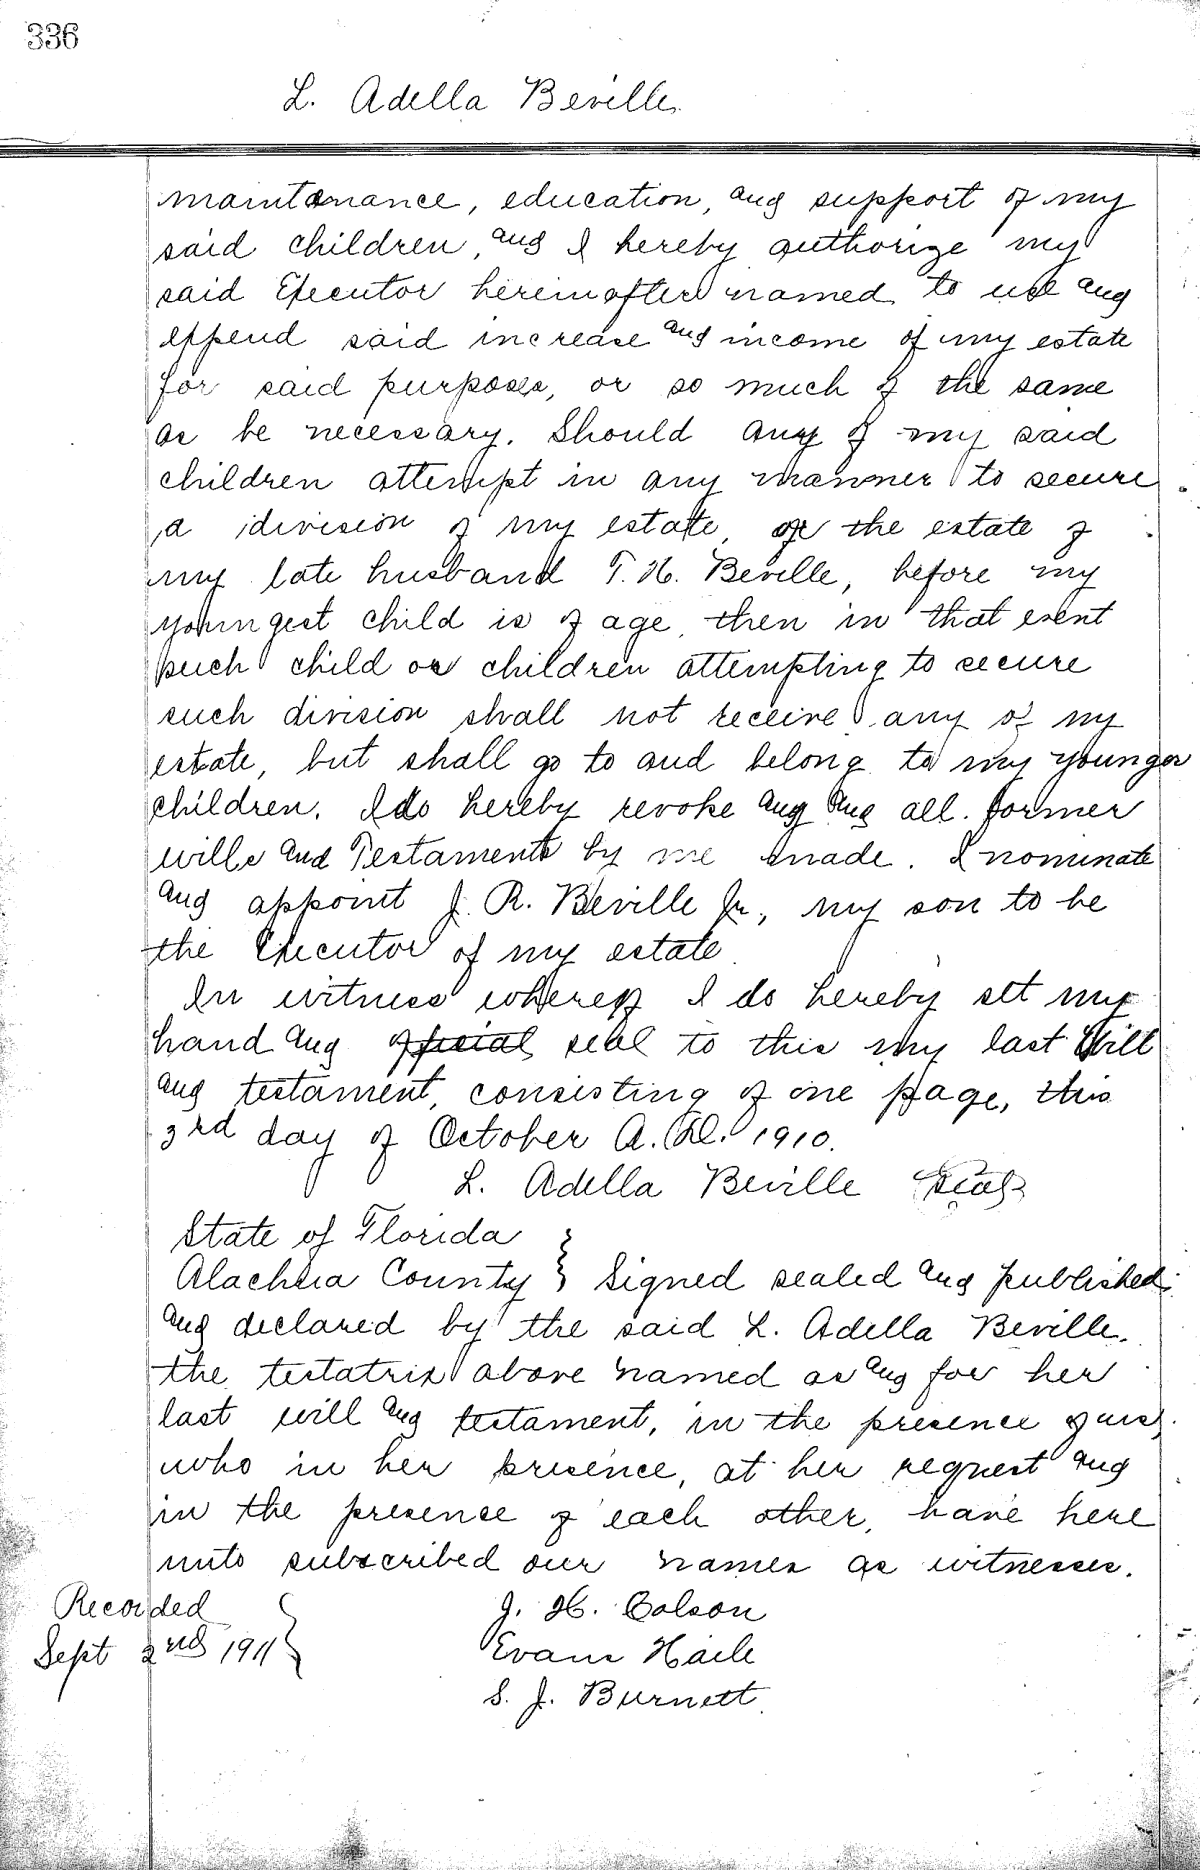 336
L. Adella Beville.
maintanance, education, and support of my
said children, and I hereby authorize my
said Executor hereinafter named, to use and
expend said increase and income of my estate
for said purposes, or so much of the same
as be necessary. Should any of my said
children attempt in any manner to secure
a division of my estate, or the estate of
my late husband T. H. Beville, before my
youngest child is of age, then in that event
such child or children attempting to secure
such division shall not receive any of my
estate, but shall go to and belong to my younger
children. I do hereby revoke any and all former
wills and Testaments by me made. I nominate
and appoint J. R. Beville Jr., my son to be
the Executor of my estate.
In witness whereof I do hereby set my
hand and official seal to this my last Will
and testament, consisting of one page, this
3rd day of October A. D. 1910.
L. Adella Beville Seal
State of Florida
Alachua County } Signed sealed and published
and declared by the said L. Adella Beville.
the testatrix above named as and for her
last will and testament, in the presence of us,
who in her presence, at her request and
in the presence of each other, have here
unto subscribed our names as witnesses.
Recorded J. H. Colson
Sept 2nd 1911 } Evans Haile
S. J. Burnett.